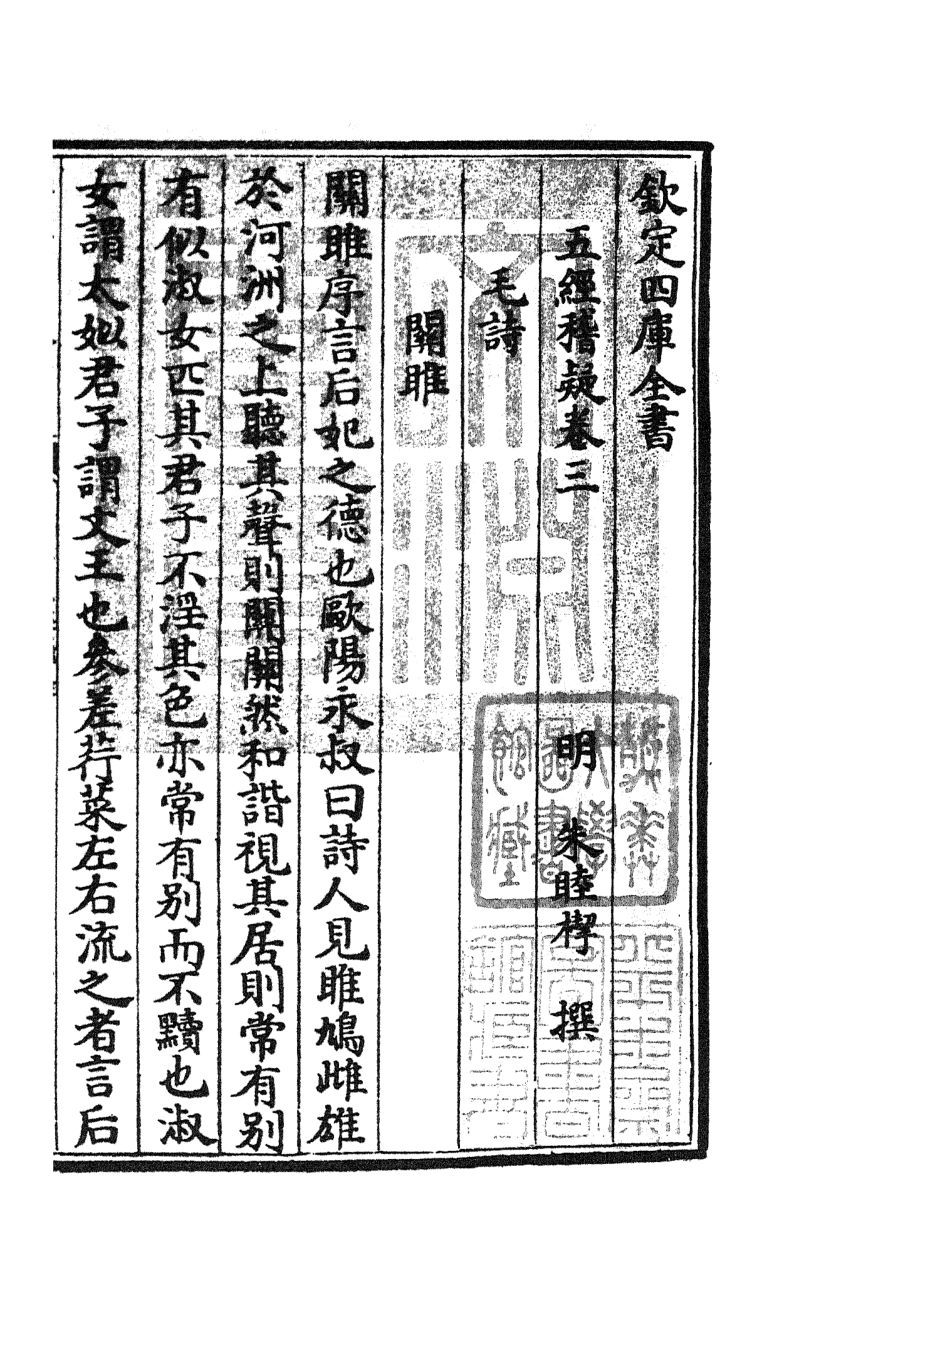 欽定四庫全書
五經稽疑卷三
明 朱睦㮮 撰
毛詩
關雎
關雎序言后妃之德也歐陽永叔曰詩人見雎鳩雌雄
於河洲之上聽其聲則關關然和諧視其居則常有别
有似淑女匹其君子不淫其色亦常有别而不黷也淑
女謂太姒君子謂文王也參差荇菜左右流之者言后